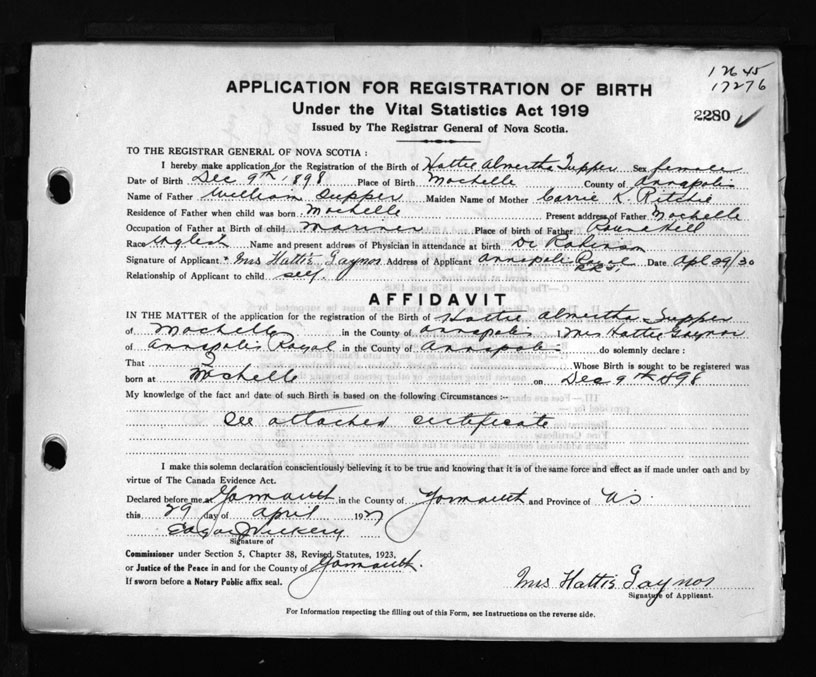 12645
17276
APPLICATION FOR REGISTRATION OF BIRTH
Under the Vital Statistics Act 1919
2280
Issued by The Registrar General of Nova Scotia.
TO THE REGISTRAR GENERAL OF NOVA SCOTIA:
I hereby make application for the Registration of the Birth of Hattie Almertha Tupper Sex female
Date of Birth Dec 9th 1898 Place of Birth Mochelle County of Annapolis
Name of Father William Tupper Maiden Name of Mother Carrie K Ritchie
Residence of Father when child was born Mochelle Present address of Father Mochelle
Occupation of Father at Birth of child Mariner Place of birth of Father Round Hill
Race English Name and present address of Physician in attendance at birth Dr Robinson
Signature of Applicant Mrs Hattie Gaynor Address of Applicant Annapolis Royal Date Apl 29/30
Relationship of Applicant to child self.
AFFIDAVIT
IN THE MATTER of the application for the registration of the Birth of Hattie Almertha Tupper
of Mochelle in the County of Annapolis I Mrs Hattie Gaynor
of Annapolis Royal in the County of Annapolis do solemnly declare:
That I Whose Birth is sought to be registered was
born at Mochelle on Dec 9th 1898
My knowledge of the fact and date of such Birth is based on the following Circumstances :-
See attached certificate
I make this solemn declaration conscientiously believing it to be true and knowing that it is of the same force and effect as if made under oath and by
virtue of The Canada Evidence Act.
Declared before me at Yarmouth in the County of Yarmouth and Province of NS
this 29 day of April 19
Edgar Vickery
Signature of
Commissioner under Section 5, Chapter 38, Revised Statutes, 1923,
or Justice of the Peace in and for the County of Yarmouth.
If sworn before a Notary Public affix seal.
Mrs Hattie Gaynor
Signature of Applicant.
For Information respecting the filling out of this Form, see Instructions on the reverse side.